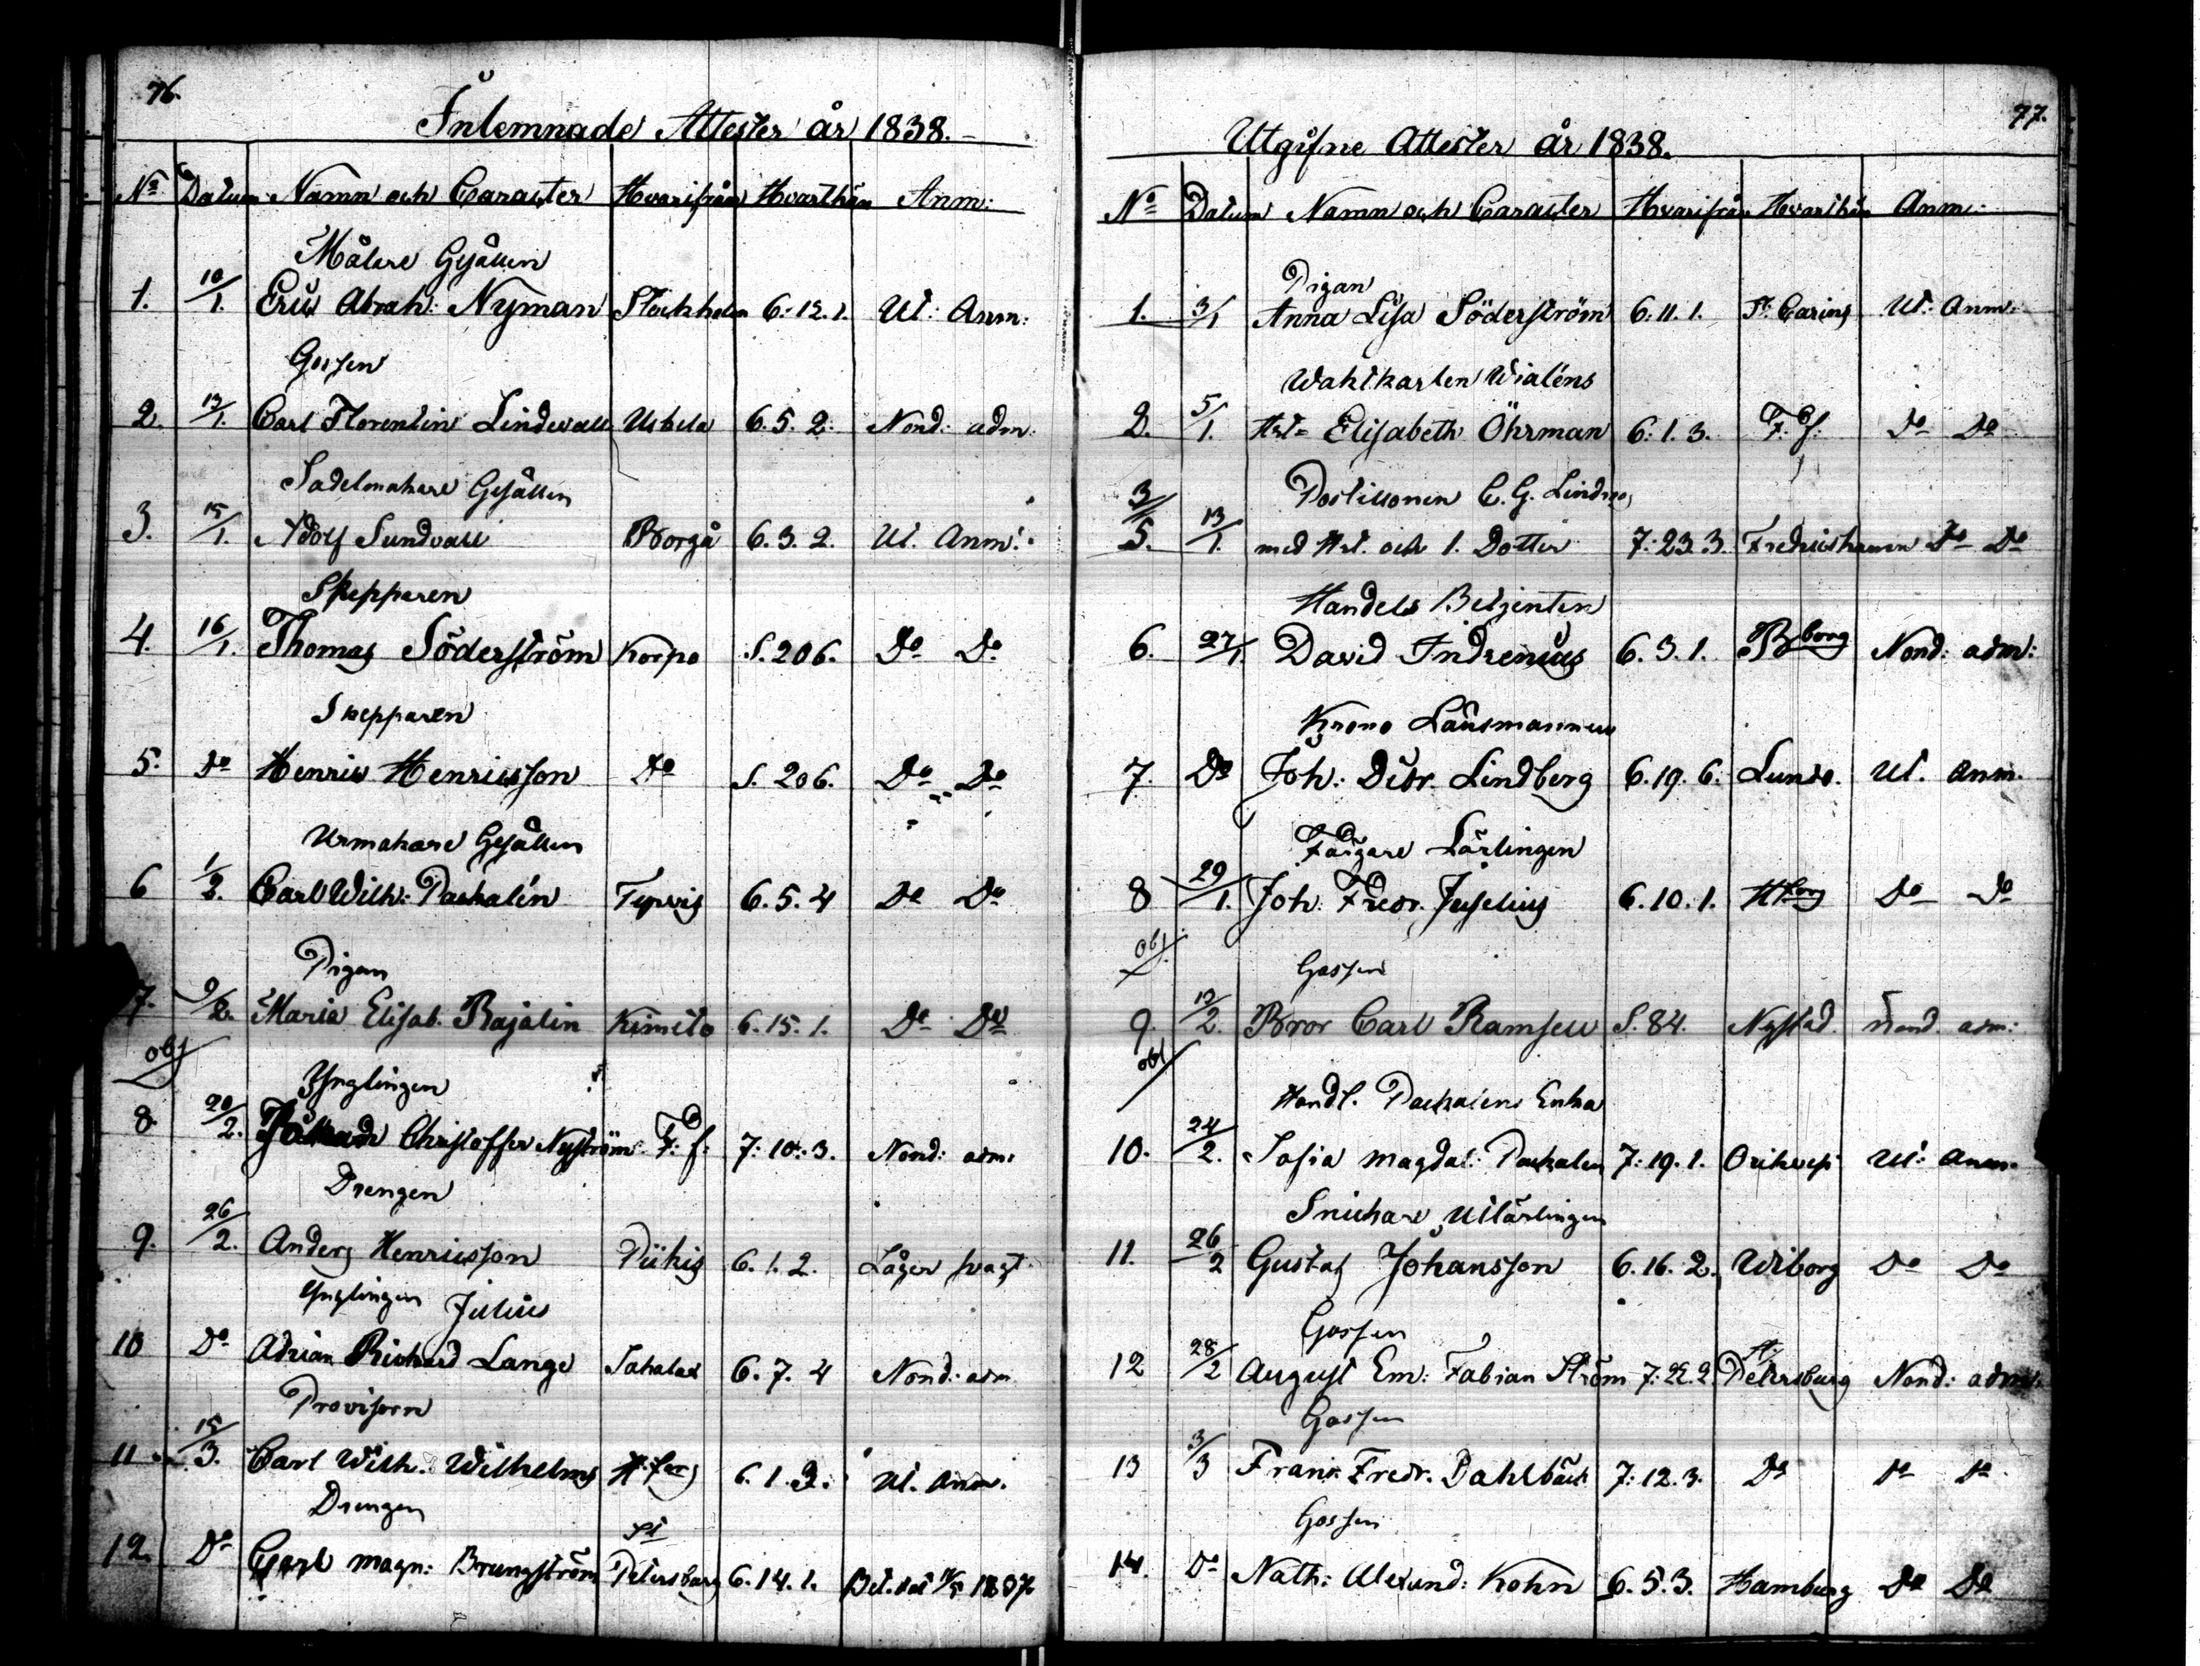 76.
Inlemnade Attester år 1838.
No Datum Namn och Caracter Hvarifrån Hvarthän Anm:
Målare Gesällen
1. 10/1. Eric Abrah: Nyman Stockholm 6.12.1. Ut: Anm:
Gossen
2. 13/1. Carl Florentin Lindevall Uskela 6.5.2. Nond: adm:
Sadelmakare Gesällen
3. 15/1. Adolf Sundvall Borgå 6.3.2. Ut. Anm:
Skepparen
4. 16/1. Thomas Söderström Korpo S.206. Do Do
Skepparen
5. Do Henric Henricsson Do S.206. Do Do
Urmakare Gesällen
6 1/2. Carl Wilh: Paxalén Tyrvis 6.5.4 Do Do
Pigan
7. 9/2. Maria Elisab. Rajalin Kimito 6.15.1. Do Do
obs
Ynglingen
8 20/2. Christoffer Nyström F:f: 7:10:3. Nond: adm:
Drengen
9. 26/2. Anders Henricsson Piikis 6.1.2. Låger vagt
Ynglingen Julius
10 Do Adrian Richard Lange Sahalax 6.7.4 Nond: adm
Provisorn
11 15/3. Carl Wilh. Wilhelms H:fors 6.1.3. Ut. Anm.
Drengen
St
12. Do Carl Magn: Brungström Petersburg 6.14.1. 1837
77.
Utgifne Attester år 1838.
No Datum Namn och Caracter Hvarifrån Hvarthän Anm:
Pigan
1. 3/1 Anna Lisa Söderström 6.11.1. St: Carins Ut: Anm:
Wahtkarlen Wialéns
2. 5/1. Hst= Elisabeth Öhrman 6.1.3. F.f: Do Do
3/ Postillonen C. G. Lindros
5. 13/1. med Hst. och 1. Dotter 7:23.3. Fredricshamn Do Do
Handels Betjenten
6. 27/1. David Indrenius 6.3.1. Bborg Nond: adm:
Krono Länsmannen
7. Do Joh: Didr. Lindberg 6.19.6. Lundo. Ut. Anm.
Färgare Lärlingen
8 29/1. Joh. Fredr. Juselius 6.10.1. Hfors Do Do
obs
Gossen
9. 12/2. Bror Carl Ramsell S.84. Nystad Nond. adm:
obs
Handl. Paxalens Enka
10. 24/2. Sofia Magdal: Paxalen 7:19.1. Orihvesi Ut: Anm.
Snickare Utlärlingen
11. 26/2 Gustaf Johansson 6.16.2. Wiborg Do Do
Gossen
12 28/2 August Em: Fabian Ström 7:22.2. St: Petersburg Nond: adm:
Gossen
13 3/3 Frans Fredr. Dahlbäck 7:12.3. Do Do Do
Gossen
14. Do Nath: Alexand: Kohn 6.5.3. Hamburg Do Do